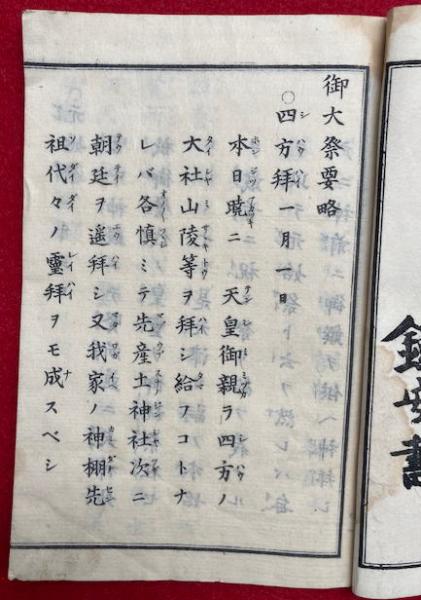 御大祭要略
○四方拝一月一日
本日暁ニ天皇御親ラ四方ノ
大社山陵等ヲ拝シ給フコトナ
レバ各慎ミテ先産土神社次ニ
朝廷ヲ遥拝シ又我家ノ神棚先
祖代々ノ靈拝ヲモ成スベシ